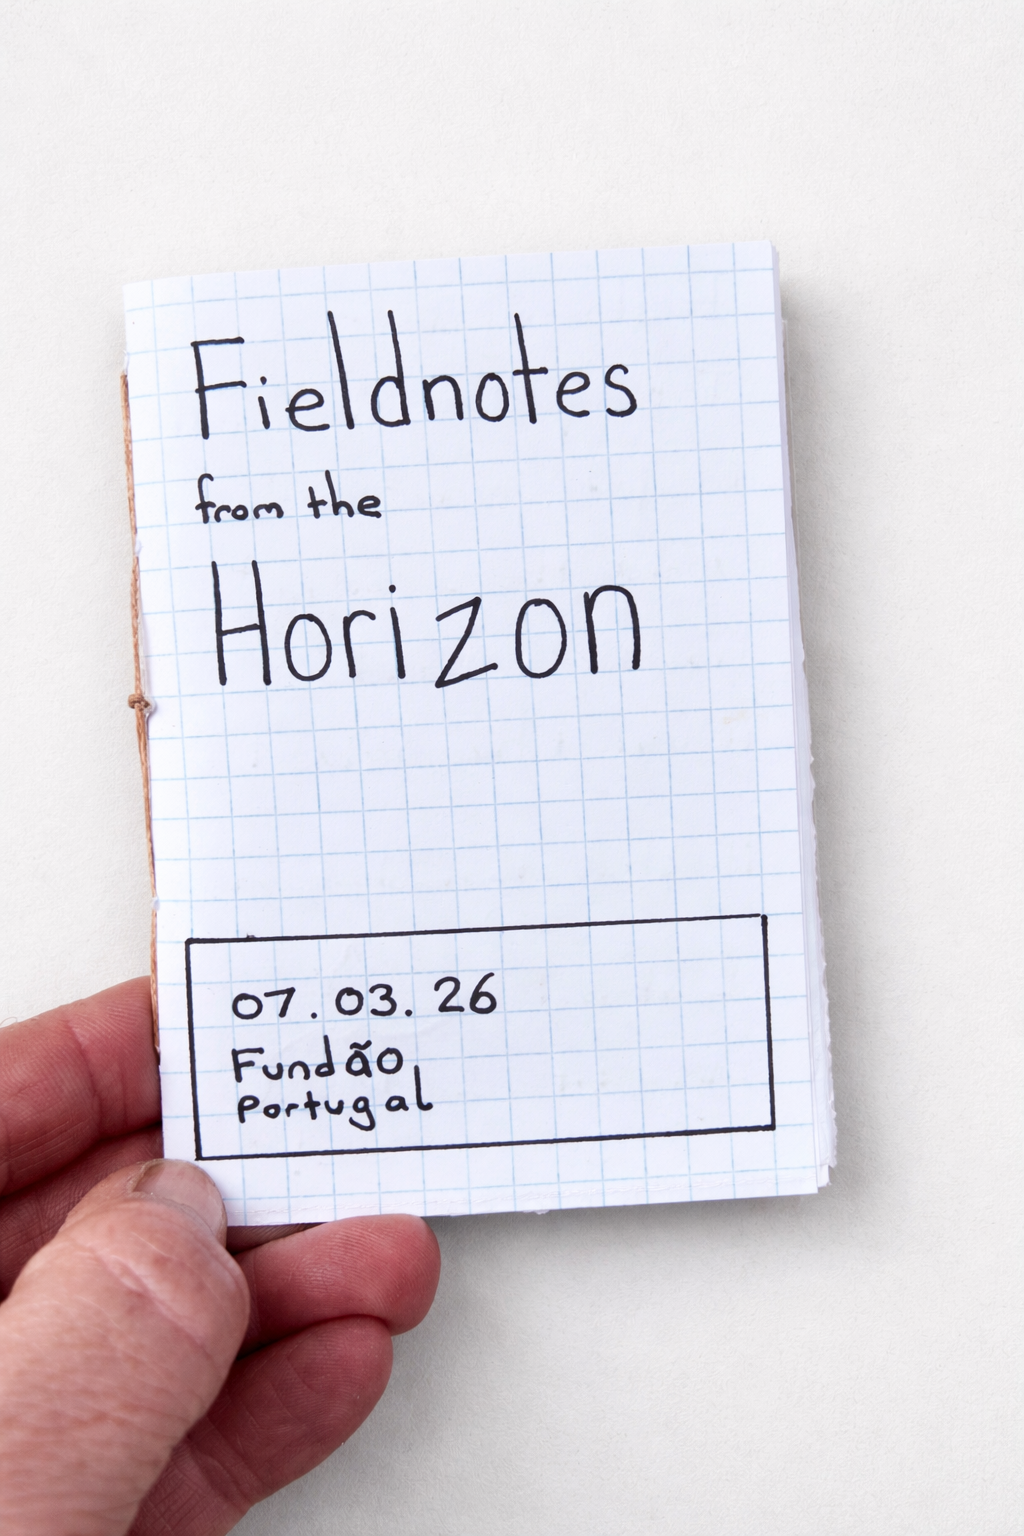 Fieldnotes
from the
Horizon
07.03.26
Fundão
Portugal